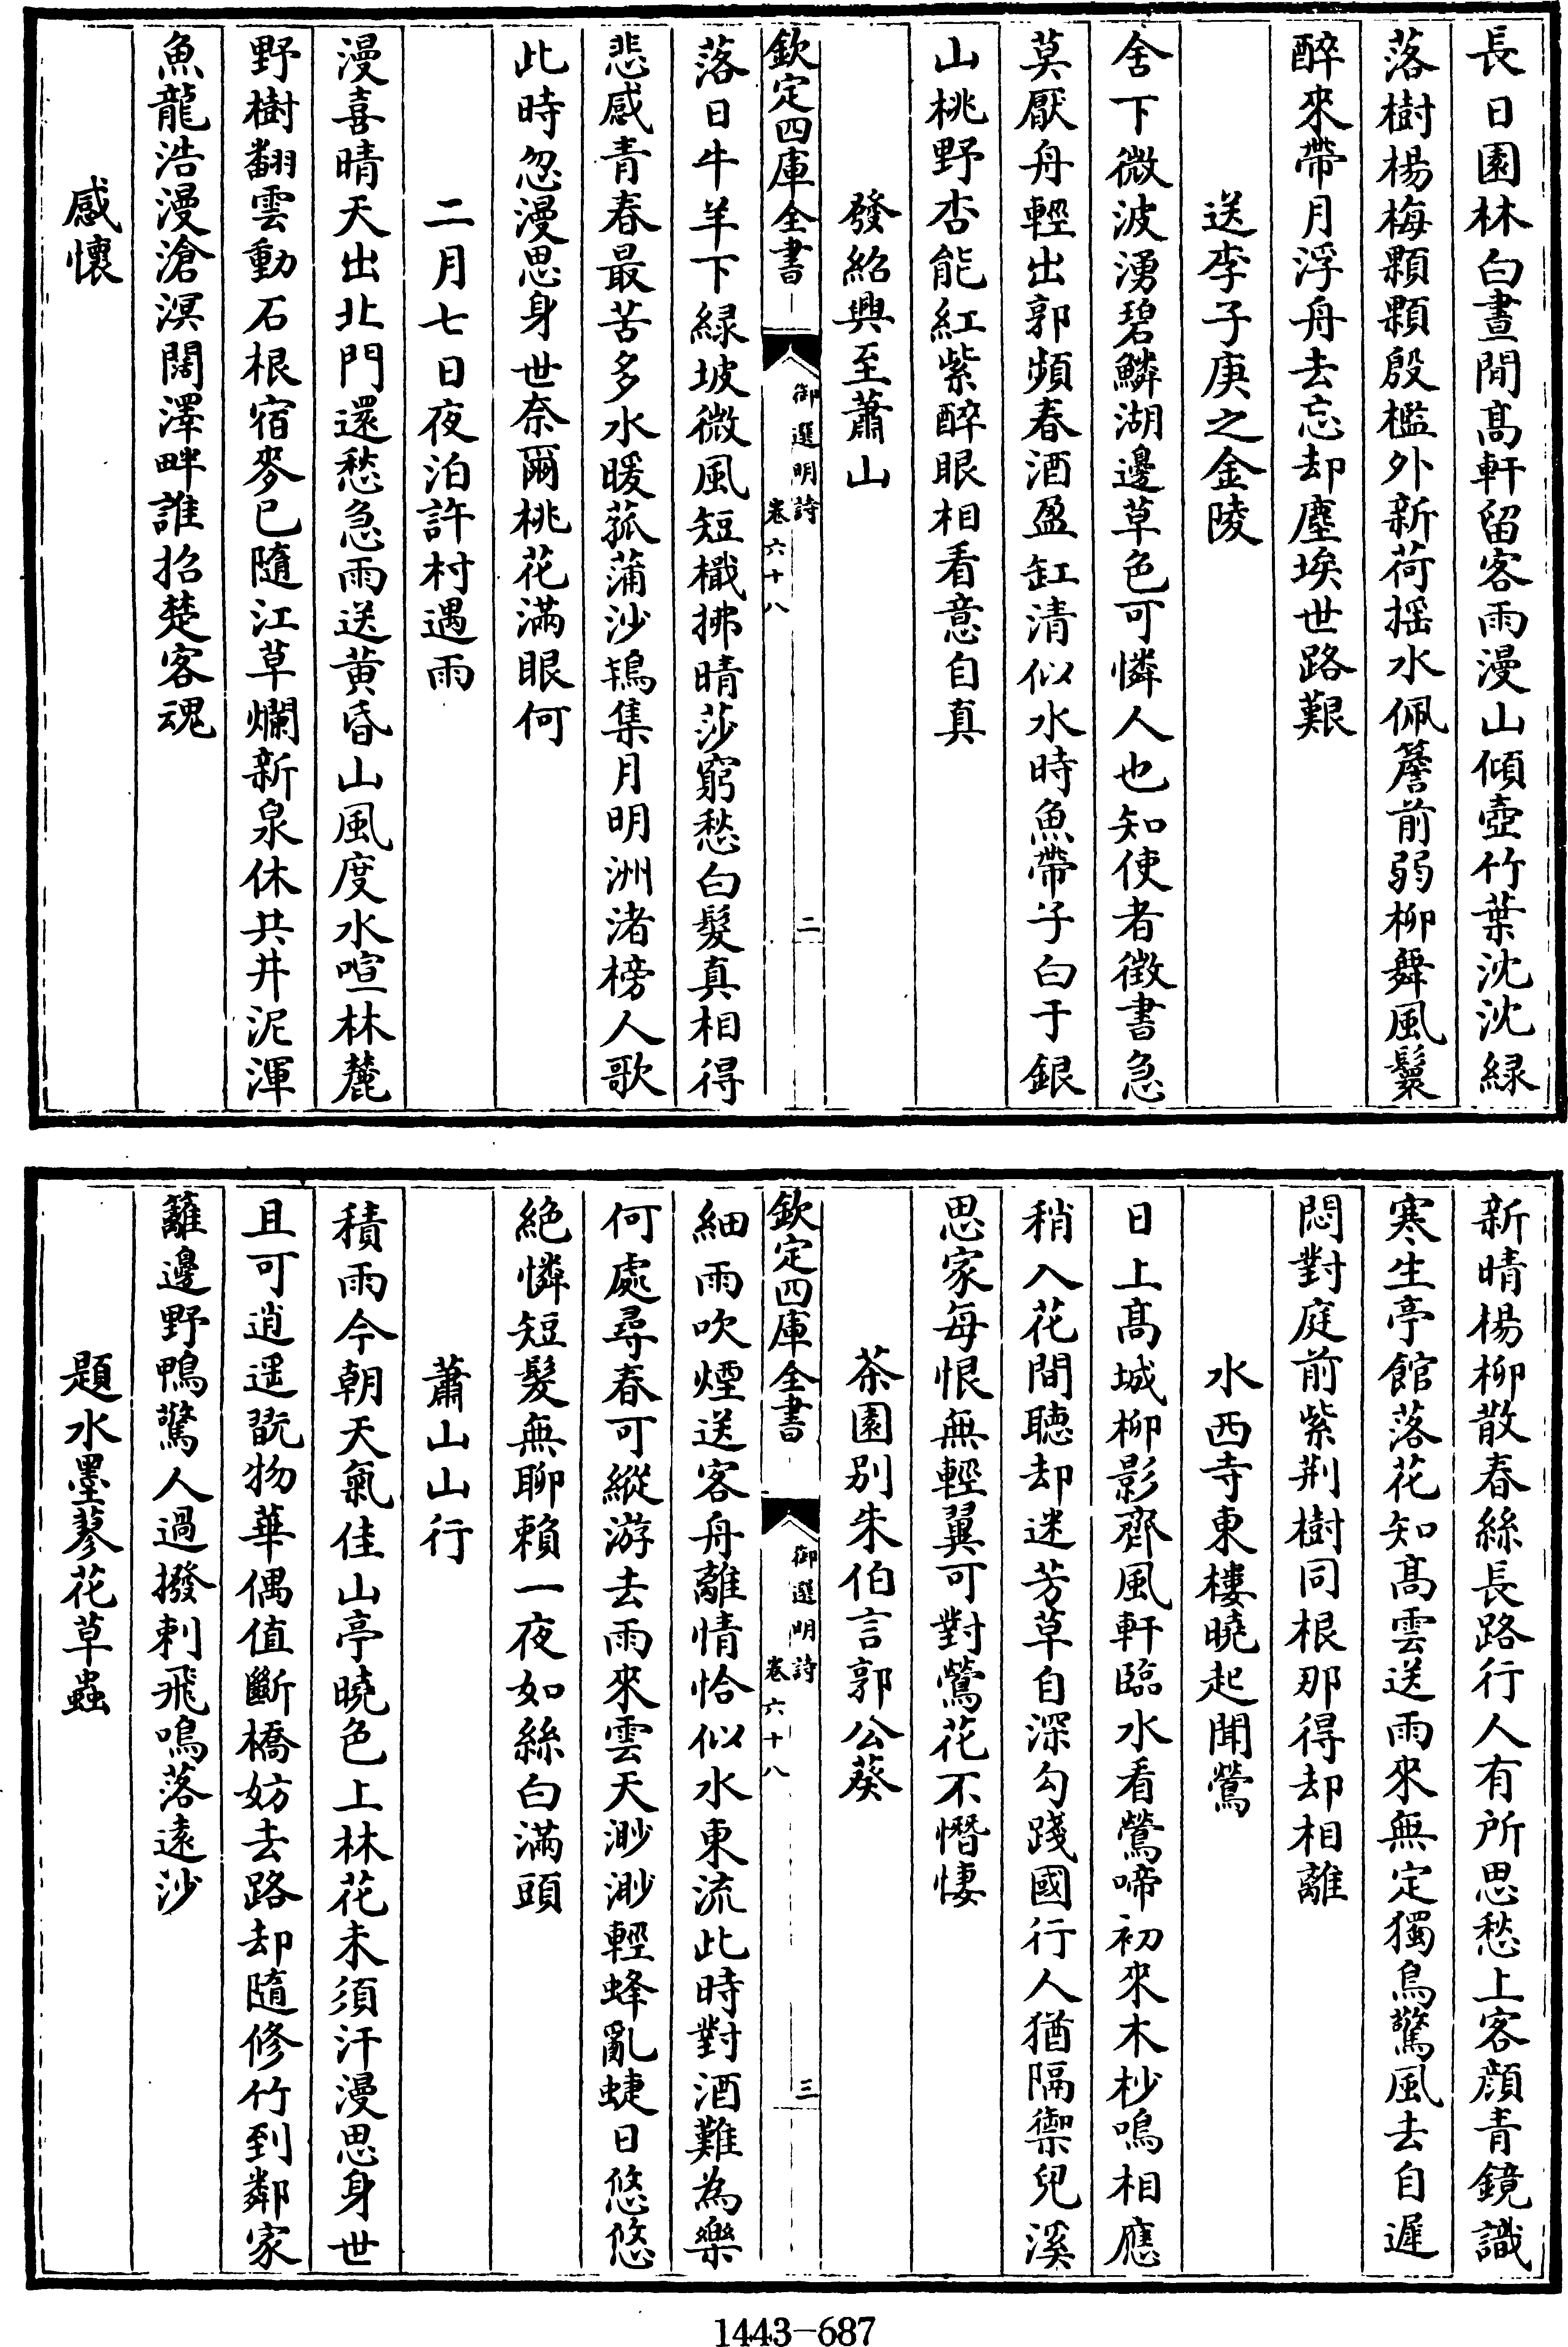 長日園林白晝閒高軒留客雨漫山傾壺竹葉沈沈緑
落樹楊梅顆顆殷檻外新荷揺水佩簷前弱柳舞風鬟
醉來帶月浮舟去忘却塵埃世路艱
送李子庚之金陵
舍下微波湧碧鱗湖邊草色可憐人也知使者徴書急
莫厭舟輕出郭頻春酒盈缸清似水時魚帶子白于銀
山桃野杏能紅紫醉眼相看意自真
發紹興至蕭山
欽定四庫全書
御選明詩
卷六十八
二
落日牛羊下緑坡微風短檝拂晴莎窮愁白髮真相得
悲感青春最苦多水暖菰蒲沙鴇集月明洲渚榜人歌
此時忽漫思身世奈爾桃花滿眼何
二月七日夜泊許村遇雨
漫喜晴天出北門還愁急雨送黄昏山風度水喧林麓
野樹翻雲動石根宿麥已隨江草爛新泉休共井泥渾
魚龍浩漫滄溟闊澤畔誰招楚客魂
感懷
新晴楊柳散春絲長路行人有所思愁上客顔青鏡識
寒生亭館落花知高雲送雨來無定獨鳥驚風去自遲
悶對庭前紫荆樹同根那得却相離
水西寺東樓曉起聞鶯
日上高城柳影齊風軒臨水看鶯啼初來木杪鳴相應
稍入花間聴却迷芳草自深勾踐國行人猶隔禦兒溪
思家每恨無輕翼可對鶯花不慘悽
茶園别朱伯言郭公葵
欽定四庫全書
御選明詩
卷六十八
三
細雨吹煙送客舟離情恰似水東流此時對酒難為樂
何處尋春可縱游去雨來雲天渺渺輕蜂亂蜨日悠悠
絶憐短髮無聊賴一夜如絲白滿頭
蕭山山行
積雨今朝天氣佳山亭曉色上林花未須汗漫思身世
且可逍遥翫物華偶值斷橋妨去路却隨修竹到鄰家
籬邊野鴨驚人過撥剌飛鳴落遠沙
題水墨蓼花草蟲
1443-687